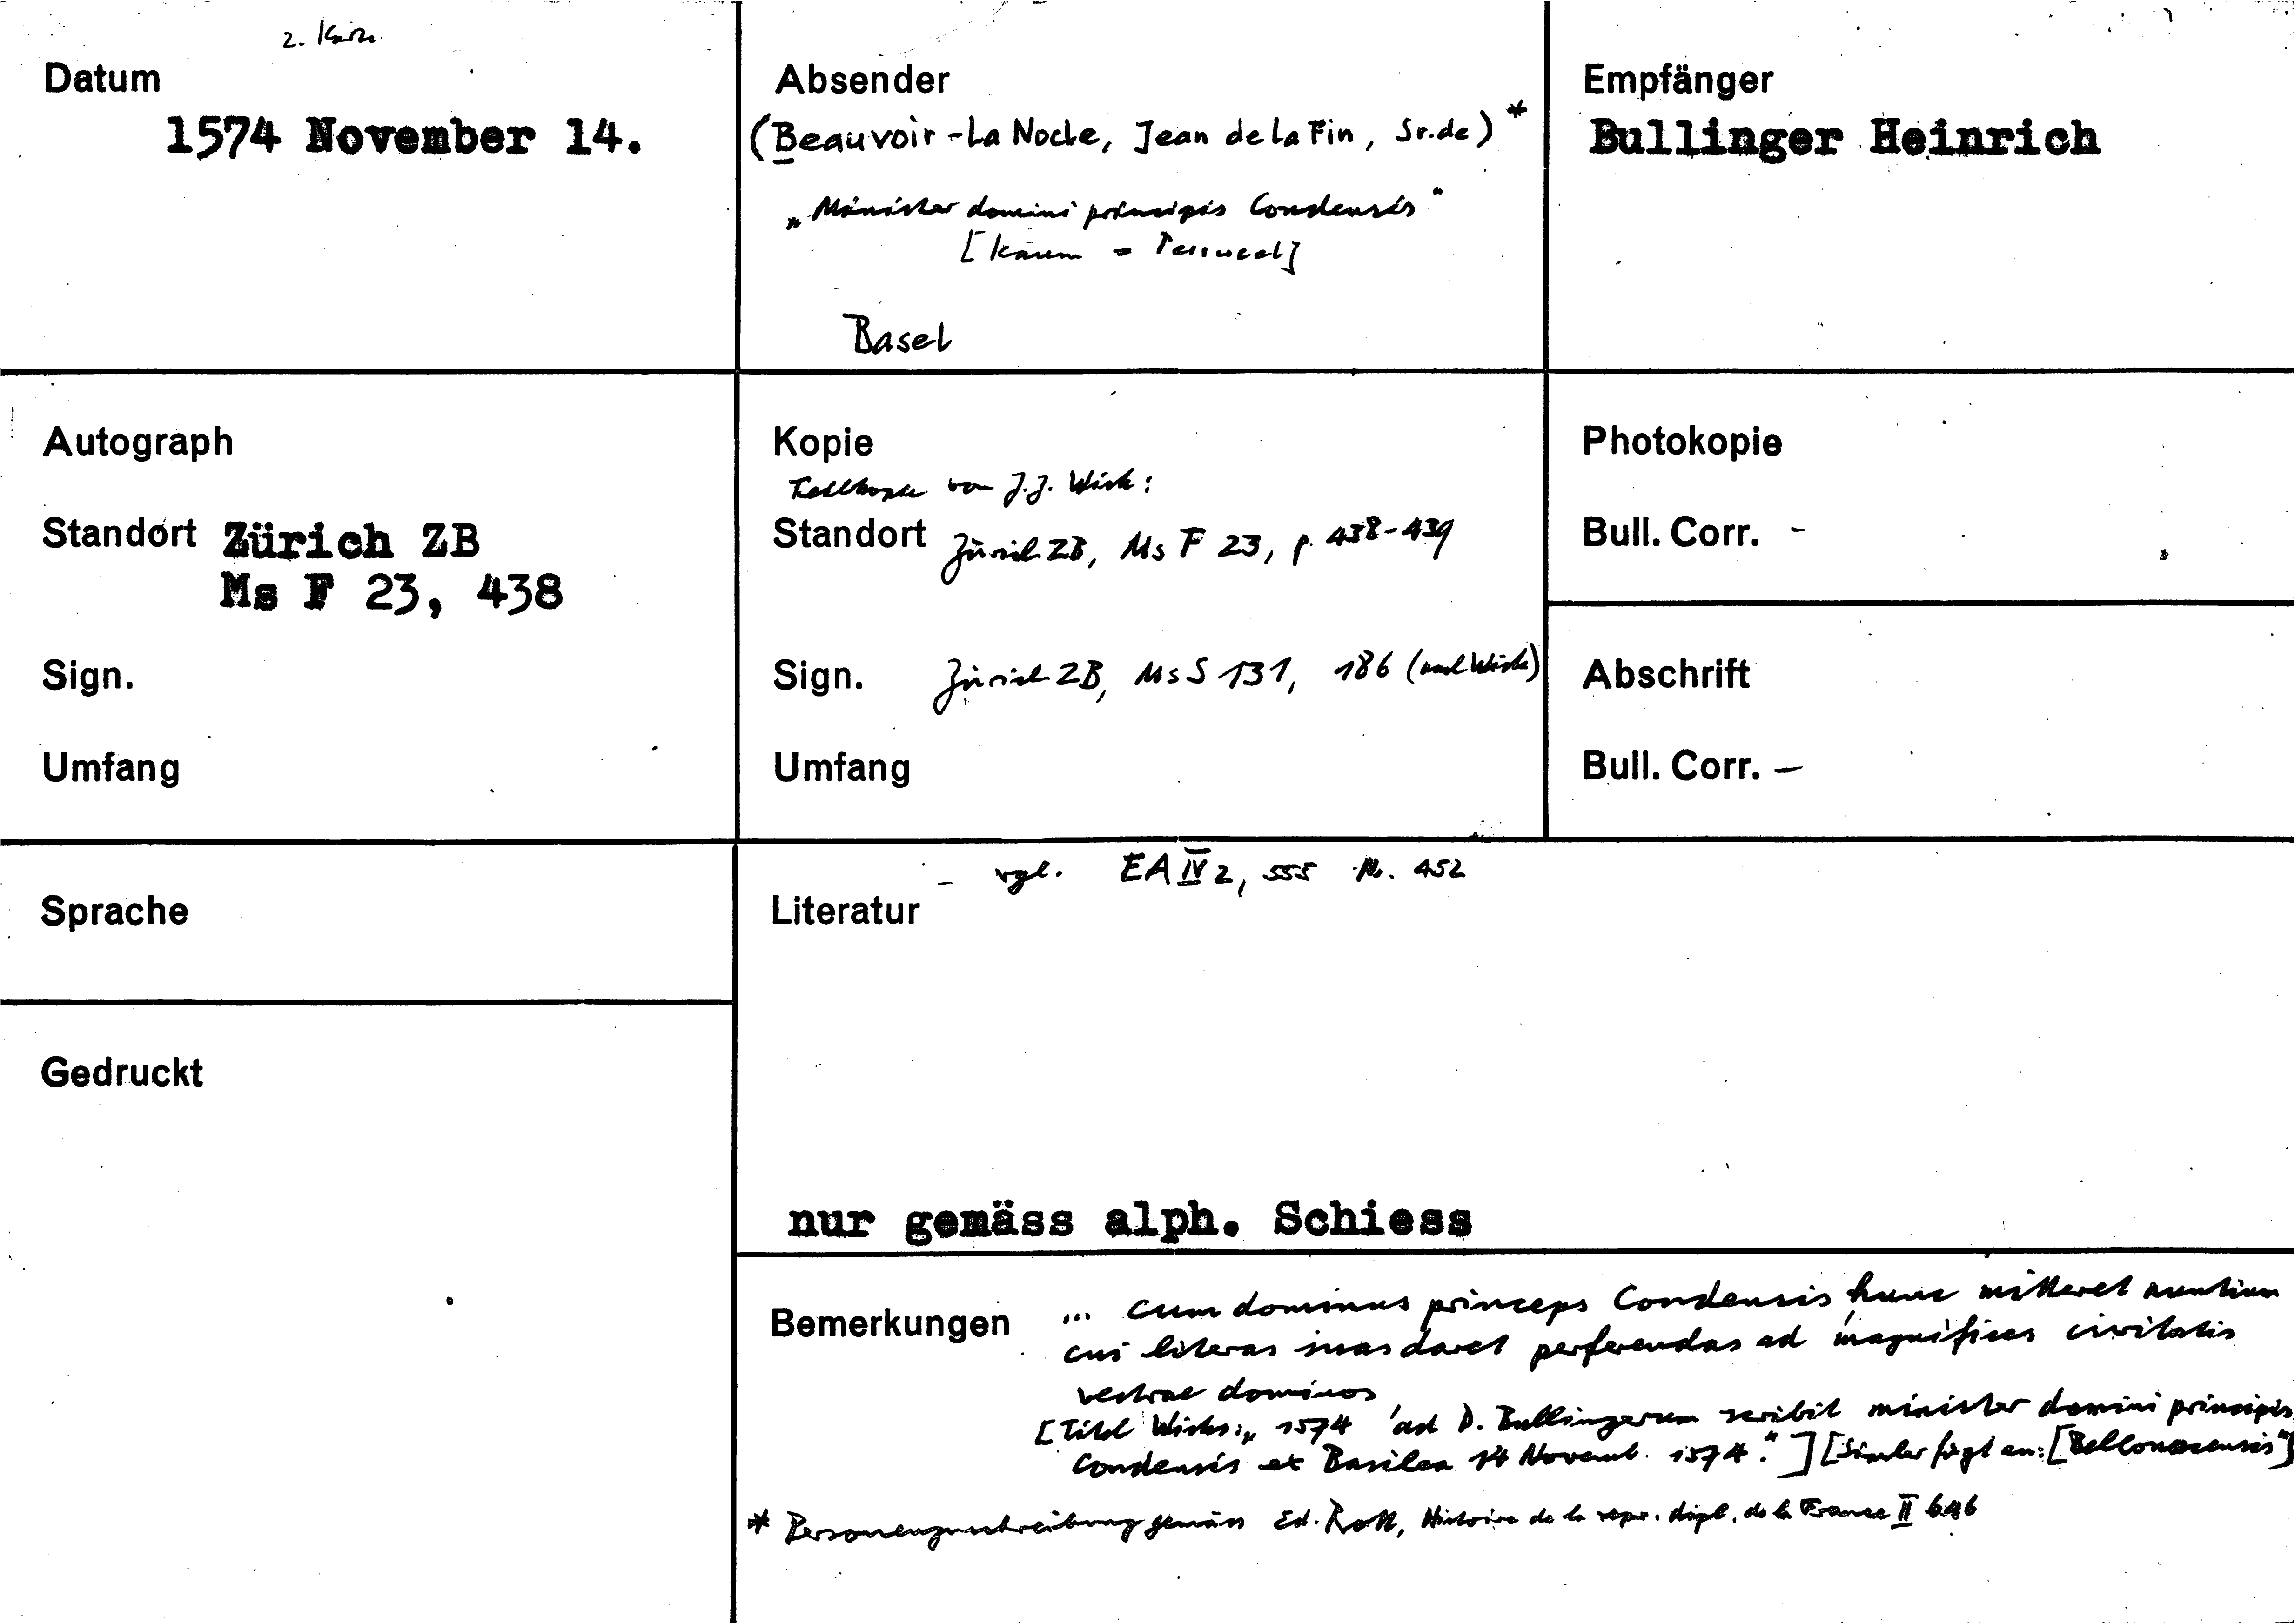 2. Karte
Datum
1574 November 14.
Absender
(Beauvoir-La Nocle, Jean de la Fin, Sr. de) *
„Minister domini principis Condensis"
[kaum = Perrucel]
Basel
Empfänger
Bullinger Heinrich
Autograph
Standort Zürich ZB
Ms F 23, 438
Sign.
Umfang
Kopie
Teilkopie von J.J. Wick:
Standort Zürich ZB, Ms F 23, p. 438-439
Sign. Zürich ZB, Ms S 131, 186 (nach Wick)
Umfang
Photokopie
Bull. Corr. -
Abschrift
Bull. Corr. —
Sprache
Gedruckt
- vgl. EA IV 2, 555 Nr. 452
Literatur
nur gemäss alph. Schiess
Bemerkungen ... cum dominus princeps Condensis hunc mitteret nuntium
cui literas suas daret perferendas ad magnificos civitatis
vestrae dominos
[Titel Wicks: „1574 ad D. Bullingerum scribit minister domini principis
Condensis ex Basilea 14 Novemb. 1574."] [Simler fügt an: [
* Personenzuschreibung gemäss Ed. Rott, Histoire de la repr. dipl. de la France II